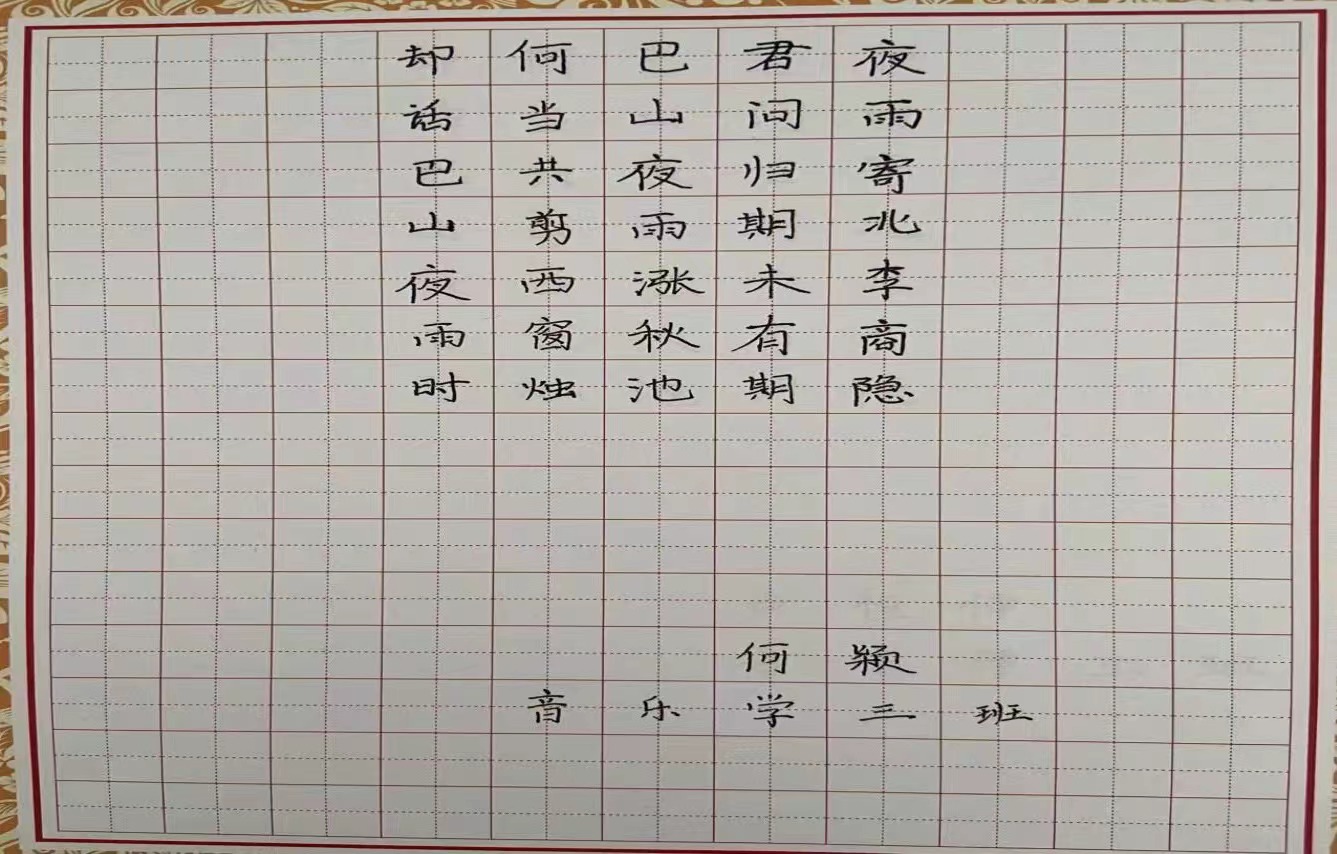 夜雨寄北李商隐
君问归期未有期
巴山夜雨涨秋池
何当共剪西窗烛
却话巴山夜雨时
何颖
音乐学三班